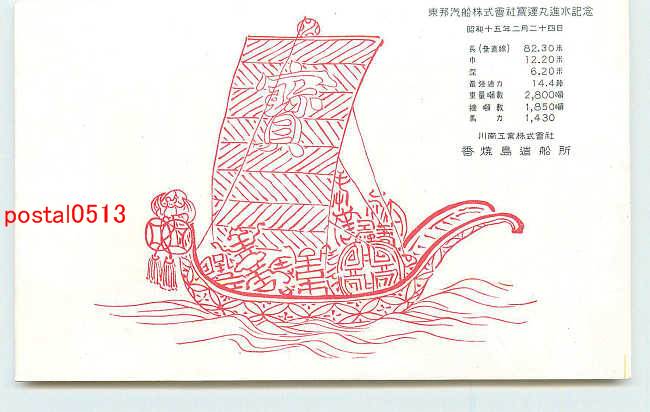 東邦汽船株式會社寶運丸進水記念
昭和十五年二月二十四日
長(垂直線) 82.30米
巾 12.20米
深 6.20米
最強速力 14.4節
重量噸數 2,800噸
總噸數 1,850噸
馬力 1,430
川南工業株式會社
香焼島造船所
寶
postal0513